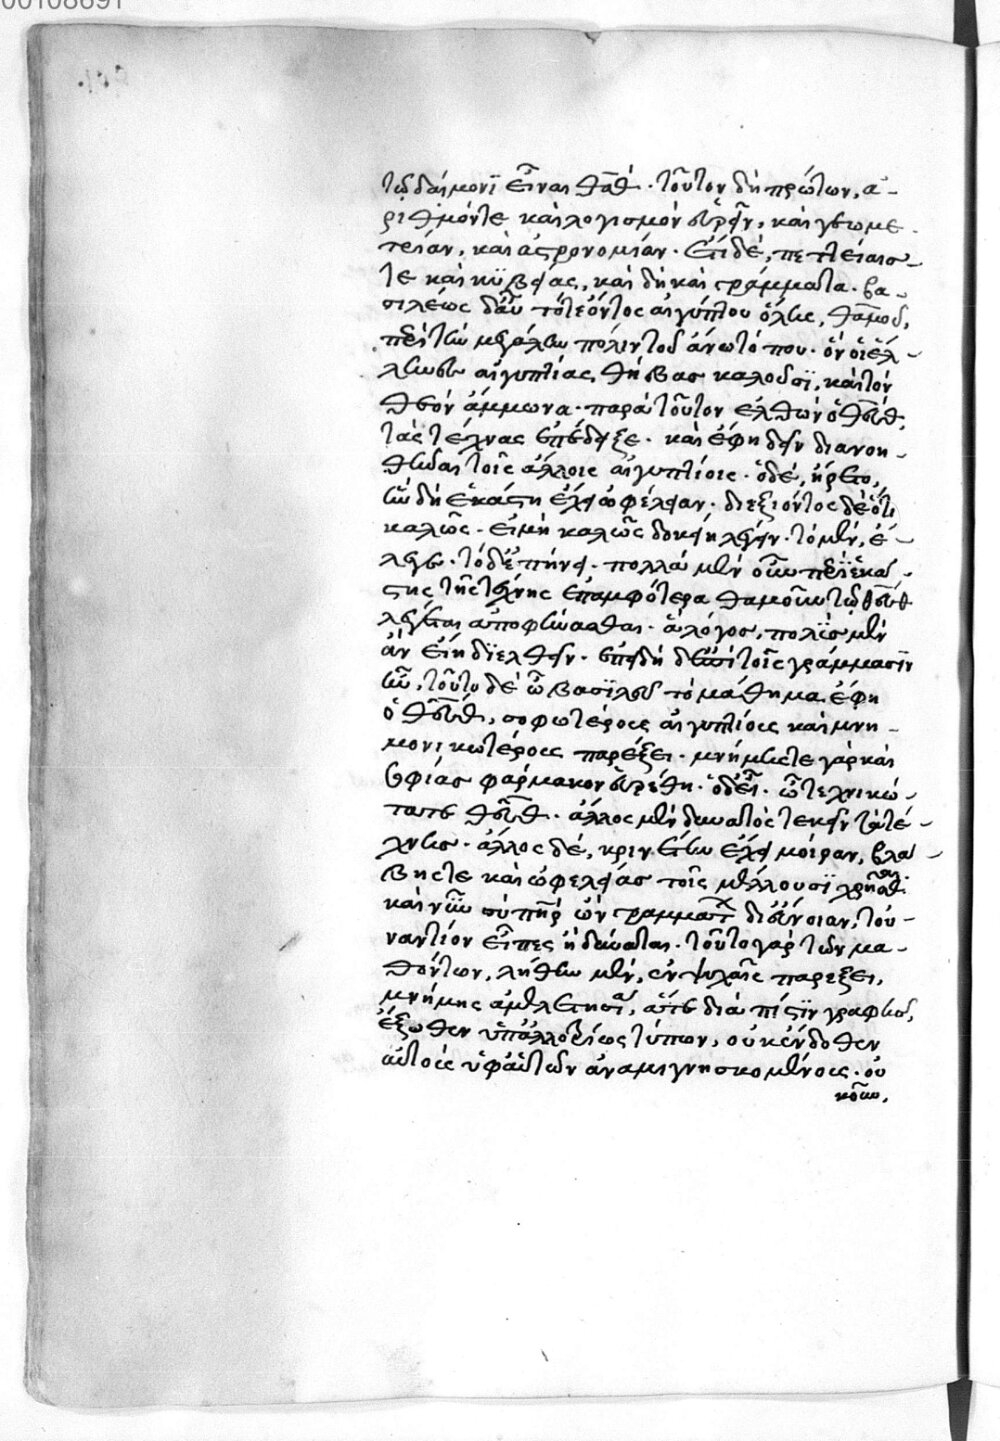 00108691
τῷ δαίμονϊ εἶναι θὰθ. τοῦτον δὴ πρῶτον, ἀ-
ριθμόντε καὶ λογισμὸν εὑρεῖν, καὶ γεωμε-
τρίαν, καὶ ἀστρονομίαν. ἔτι δέ, πεττείας
τε καὶ κυβείας, καὶ δὴ καὶ γράμματα. βα-
σιλέως δ' αὖ τότε ὄντος αἰγύπτου ὅλης, θαμοῦ,
περὶ τὴν μεγάλην πόλιν τοῦ ἄνω τόπου. ὃν οἱ ἕλ-
ληνες αἰγυπτίας θήβας καλοῦσϊ, καὶ τὸν
θεὸν ἄμμωνα. παρὰ τοῦτον ἐλθὼν ὁ θεὺθ,
τὰς τέχνας ἐπέδειξε. καὶ ἔφη δεῖν διανοη-
θῆναι τοῖς ἄλλοις αἰγυπτίοις. ὁ δέ, ἤρετο,
ἣν δὴ ἑκάστη ἔχει ὠφέλειαν. διεξιόντος δὲ ὅτι
καλῶς. εἰ μὴ καλῶς δοκείη λέγειν. τὸ μὲν, ἔ-
λεγεν. τὸ δ' ἐπήνει. πολλὰ μὲν οὖν περὶ ἑκά-
στης τῆς τέχνης ἐπ' ἀμφότερα θαμοῦν τῷ θεὺθ
λέγεται ἀποφήνασθαι. ἃ λόγος, πολὺς μὲν
ἂν εἴη διελθεῖν. ἐπειδὴ δὲ ἐπὶ τοῖς γράμμασιν
ἦν, τοῦτο δὲ ὦ βασιλεῦ τὸ μάθημα ἔφη
ὁ θεὺθ, σοφωτέρους αἰγυπτίους καὶ μνη-
μονικωτέρους παρέξει. μνήμης τε γὰρ καὶ
σοφίας φάρμακον εὑρέθη. ὁ δ' εἶπ. ὦ τεχνικώ-
τατε θεὺθ. ἄλλος μὲν δυνατὸς τεκεῖν τὰ τέ-
χνης. ἄλλος δέ, κριν. τίν' ἔχει μοίραν, βλά-
βης τε καὶ ὠφελείας τοῖς μέλλουσϊ χρῆσθαι.
καὶ νῦν σὺ πατὴρ ὢν γραμμάτων δι' εὔνοιαν, τοὐ-
ναντίον εἶπες ἢ δύναται. τοῦτο γὰρ τῶν μα-
θόντων, λήθην μὲν, ἐν ψυχαῖς παρέξει,
μνήμης ἀμελετησίᾳ, ἅτε διὰ πίστιν γραφῆς,
ἔξωθεν ὑπ' ἀλλοτρίους τύπων, οὐκ ἔνδοθεν
αὐτοὺς ὑφ' αὑτῶν ἀναμιγνησκομένους. οὐ
κοῦν,